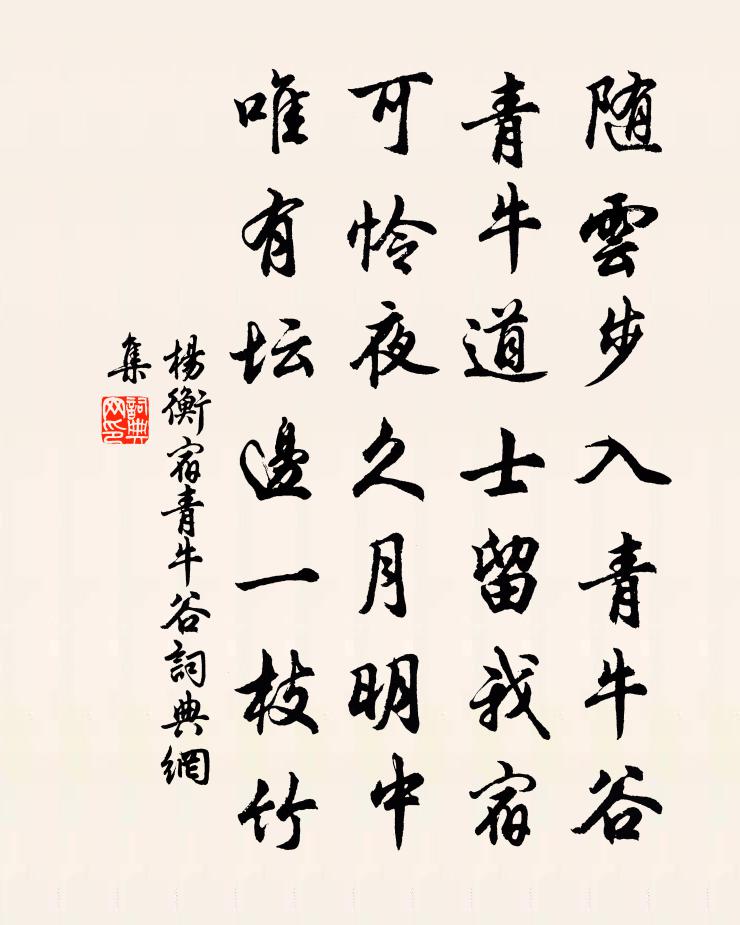 随雲步入青牛谷
青牛道士留我宿
可怜夜久月明中
唯有坛邊一枝竹
楊衡宿青牛谷詞典網
集
詞典
网印